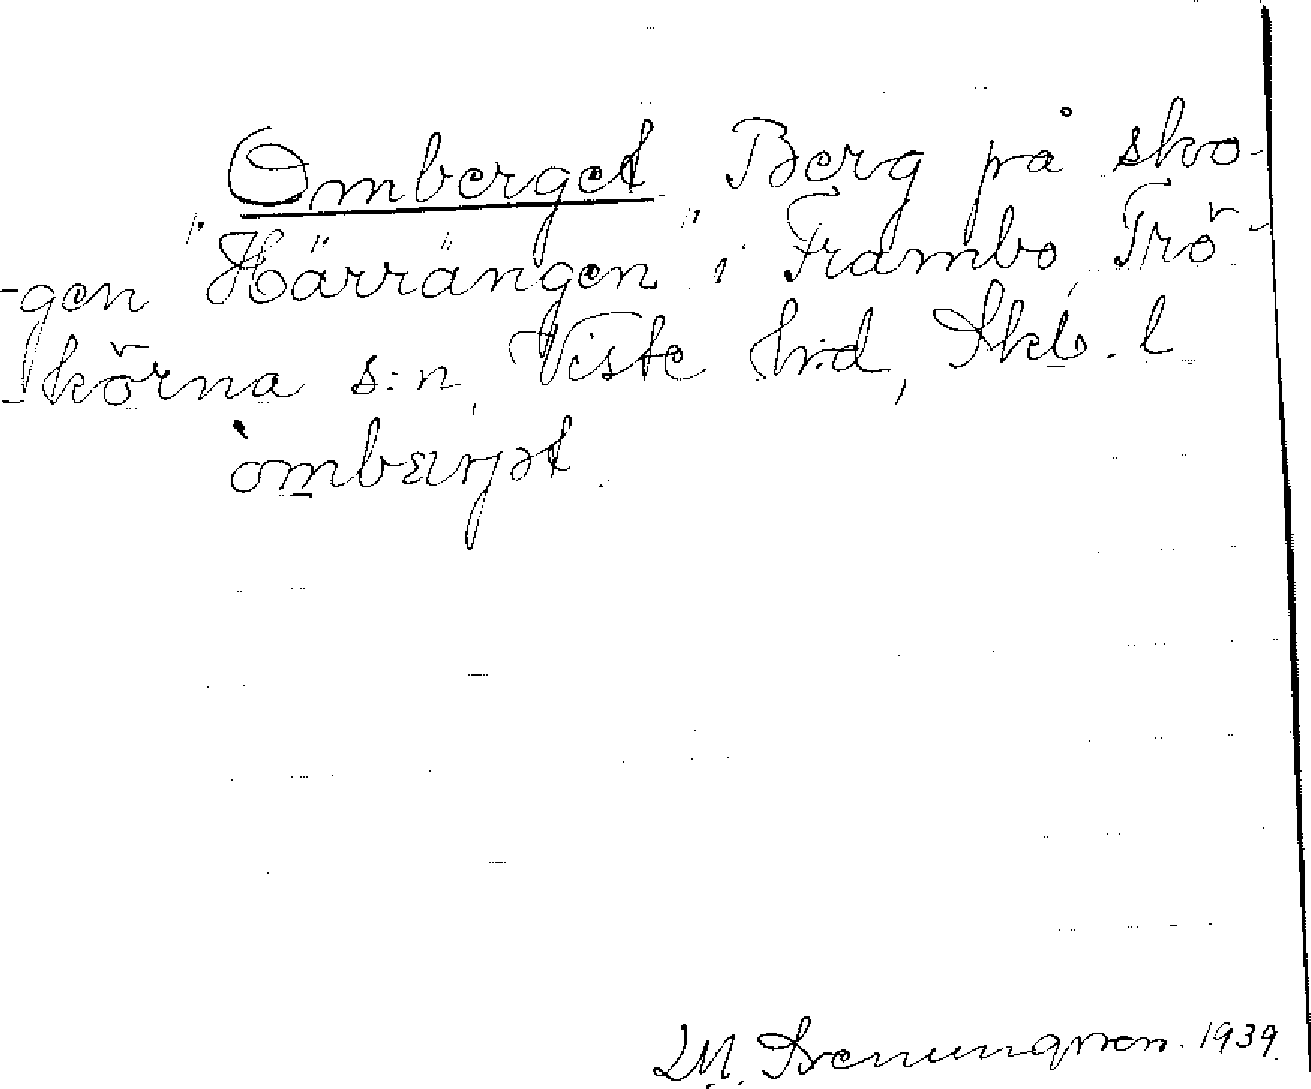 Omberget Berg på sko-
-gen "Härrängen" i Frambo, Trö-
-körna s:n, Viste h:d, Skb. l.
òmbærjət.
L M. Svenungsson. 1939.